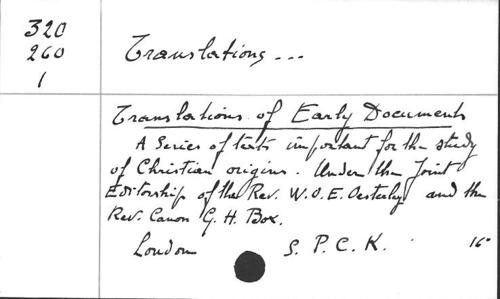 320
260
1
Translations...
Translations of Early Documents
A Series of texts important for the study
of Christian origins. Under the Joint
Editorship of the Rev. W.O.E. Oesterley and the
Rev. Canon G. H. Box.
London S. P. C. K. 16°